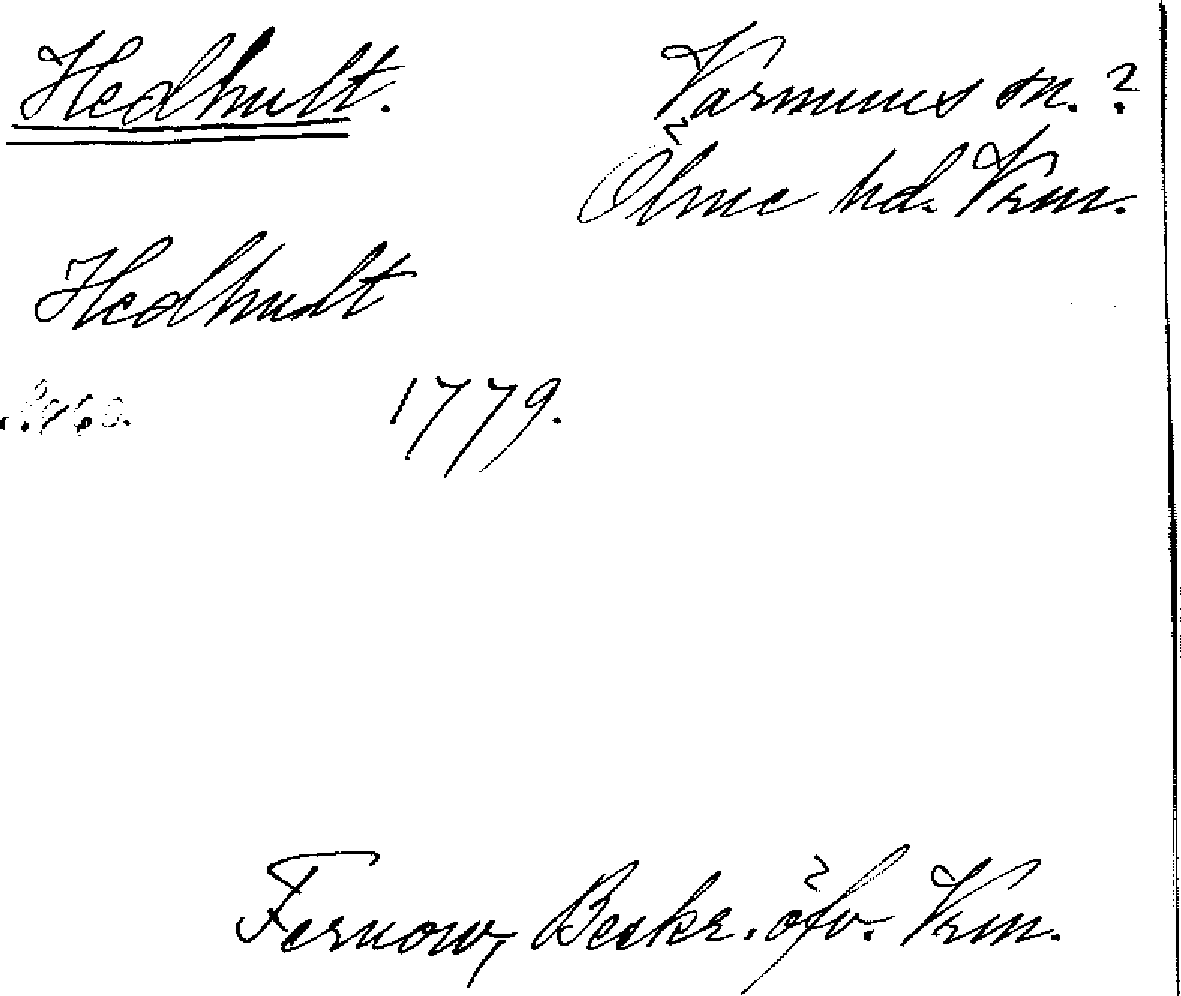 Hedhult.
Varnums sn.?
Ölme hd. Vrm.
Hedhult
1779.
Fernow, Beskr. öfv. Vrm.